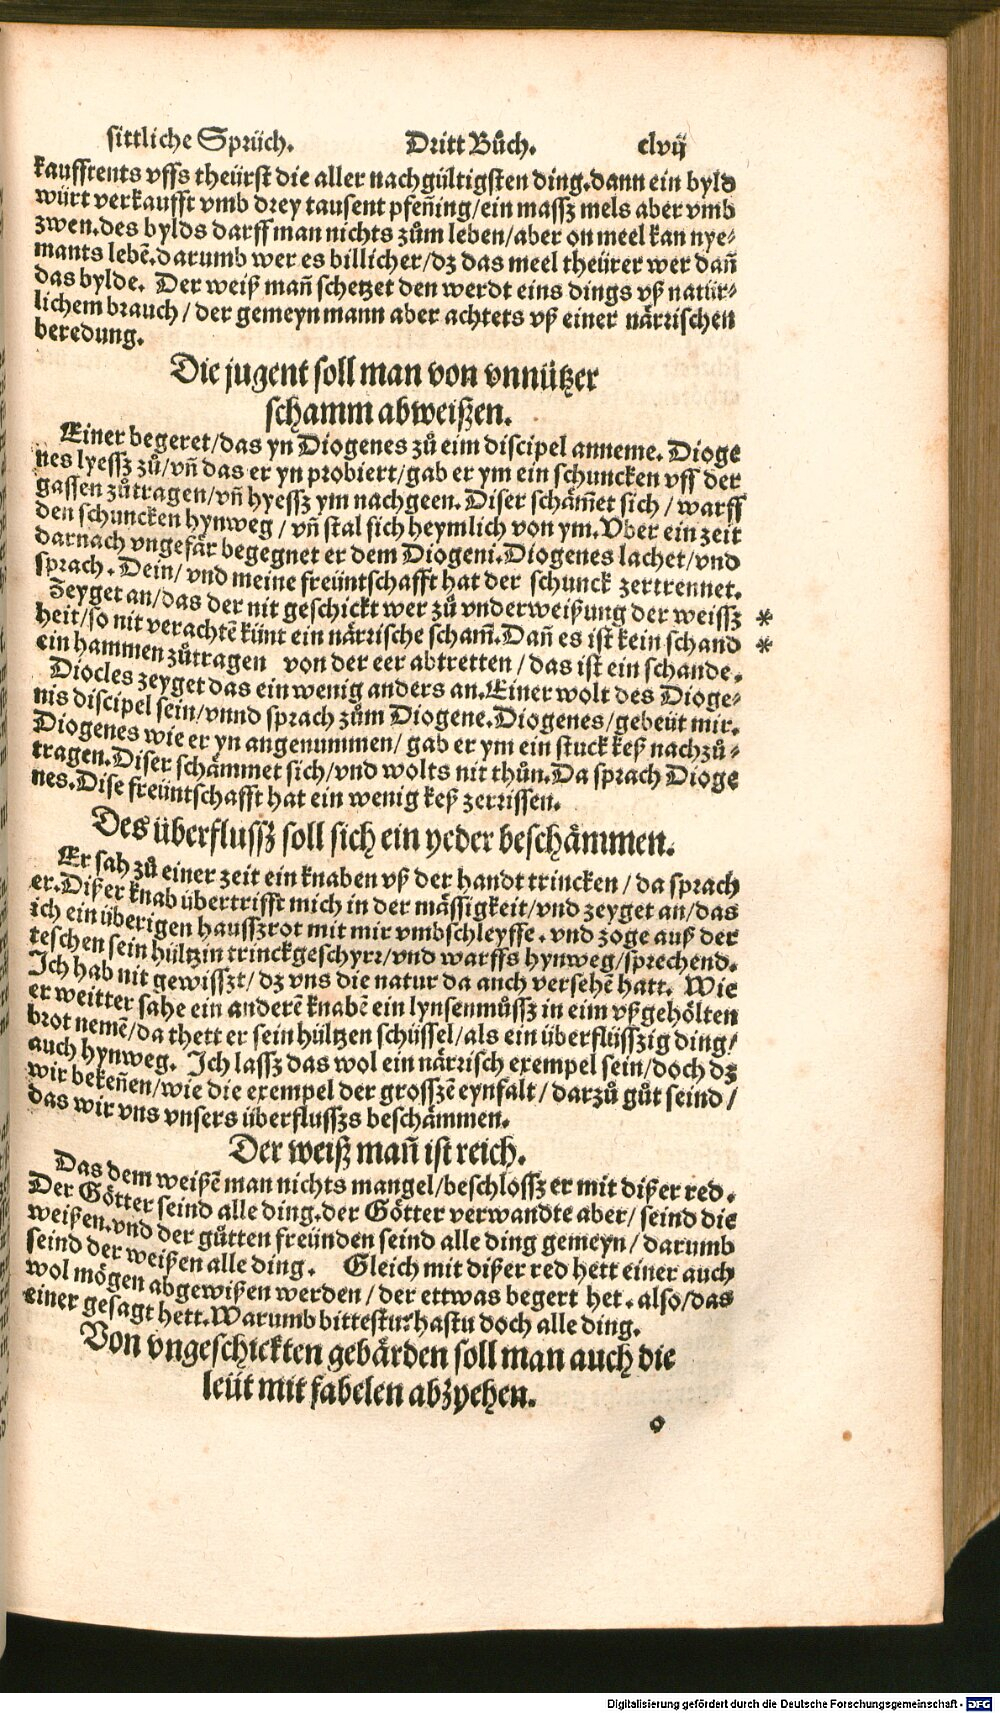 sittliche Sprüch. Dritt Bůch. clvij
kaufftents vffs theürst die aller nachgültigsten ding.dann ein byld
würt verkaufft vmb drey tausent pfeñing/ein massz mels aber vmb
zwen.des bylds darff man nichts zům leben/aber on meel kan nye⸗
mants lebẽ.darumb wer es billicher/dz das meel theürer wer dañ
das bylde. Der weiß mañ schetzet den werdt eins dings vß natür⸗
lichem brauch/der gemeyn mann aber achtets vß einer närrischen
beredung.
Die jugent soll man von vnnützer
schamm abweißen.
Einer begeret/das yn Diogenes zů eim discipel anneme. Dioge
nes lyessz zů/vñ das er yn probiert/gab er ym ein schuncken vff der
gassen zůtragen/vñ hyessz ym nachgeen. Diser schäm̃et sich/warff
den schuncken hynweg/vñ stal sich heymlich von ym.Vber ein zeit
darnach vngefär begegnet er dem Diogeni.Diogenes lachet/vnd
sprach. Dein/vnd meine freüntschafft hat der schunck zertrennet.
Zeyget an/das der nit geschickt wer zů vnderweißung der weissz *
heit/so nit verachtẽ künt ein närrische scham̃.Dañ es ist kein schand *
ein hammen zůtragen von der eer abtretten/das ist ein schande.
Diocles zeyget das ein wenig anders an.Einer wolt des Dioge⸗
nis discipel sein/vnnd sprach zům Diogene.Diogenes/gebeüt mir.
Diogenes wie er yn angenummen/gab er ym ein stuck keß nachzů⸗
tragen.Diser schämmet sich/vnd wolts nit thůn.Da sprach Dioge
nes.Dise freüntschafft hat ein wenig keß zerrissen.
Des überflussz soll sich ein yeder beschämmen.
Er sah zů einer zeit ein knaben vß der handt trincken/da sprach
er.Dißer knab übertrifft mich in der mässigkeit/vnd zeyget an/das
ich ein überigen hausszrot mit mir vmbschleyffe.vnd zoge auß der
teschen sein hültzin trinckgeschyrr/vnd warffs hynweg/sprechend.
Ich hab nit gewisszt/dz vns die natur da auch versehẽ hatt. Wie
er weitter sahe ein anderẽ knabẽ ein lynsenmůssz in eim vßgehölten
brot nemẽ/da thett er sein hültzen schüssel/als ein überflüsszig ding/
auch hynweg. Ich lassz das wol ein närrisch exempel sein/doch dz
wir bekeñen/wie die exempel der grosszẽ eynfalt/darzů gůt seind/
das wir vns vnsers überflusszs beschämmen.
Der weiß mañ ist reich.
Das dem weißẽ man nichts mangel/beschlossz er mit dißer red.
Der Götter seind alle ding.der Götter verwandte aber/seind die
weißen.vnd der gůtten freünden seind alle ding gemeyn/darumb
seind der weißen alle ding. Gleich mit dißer red hett einer auch
wol mögen abgewißen werden/der ettwas begert het.also/das
einer gesagt hett.Warumb bittestu?hastu doch alle ding.
Von vngeschickten gebärden soll man auch die
leüt mit fabelen abzyehen.
o
Digitalisierung gefördert durch die Deutsche Forschungsgemeinschaft - DFG